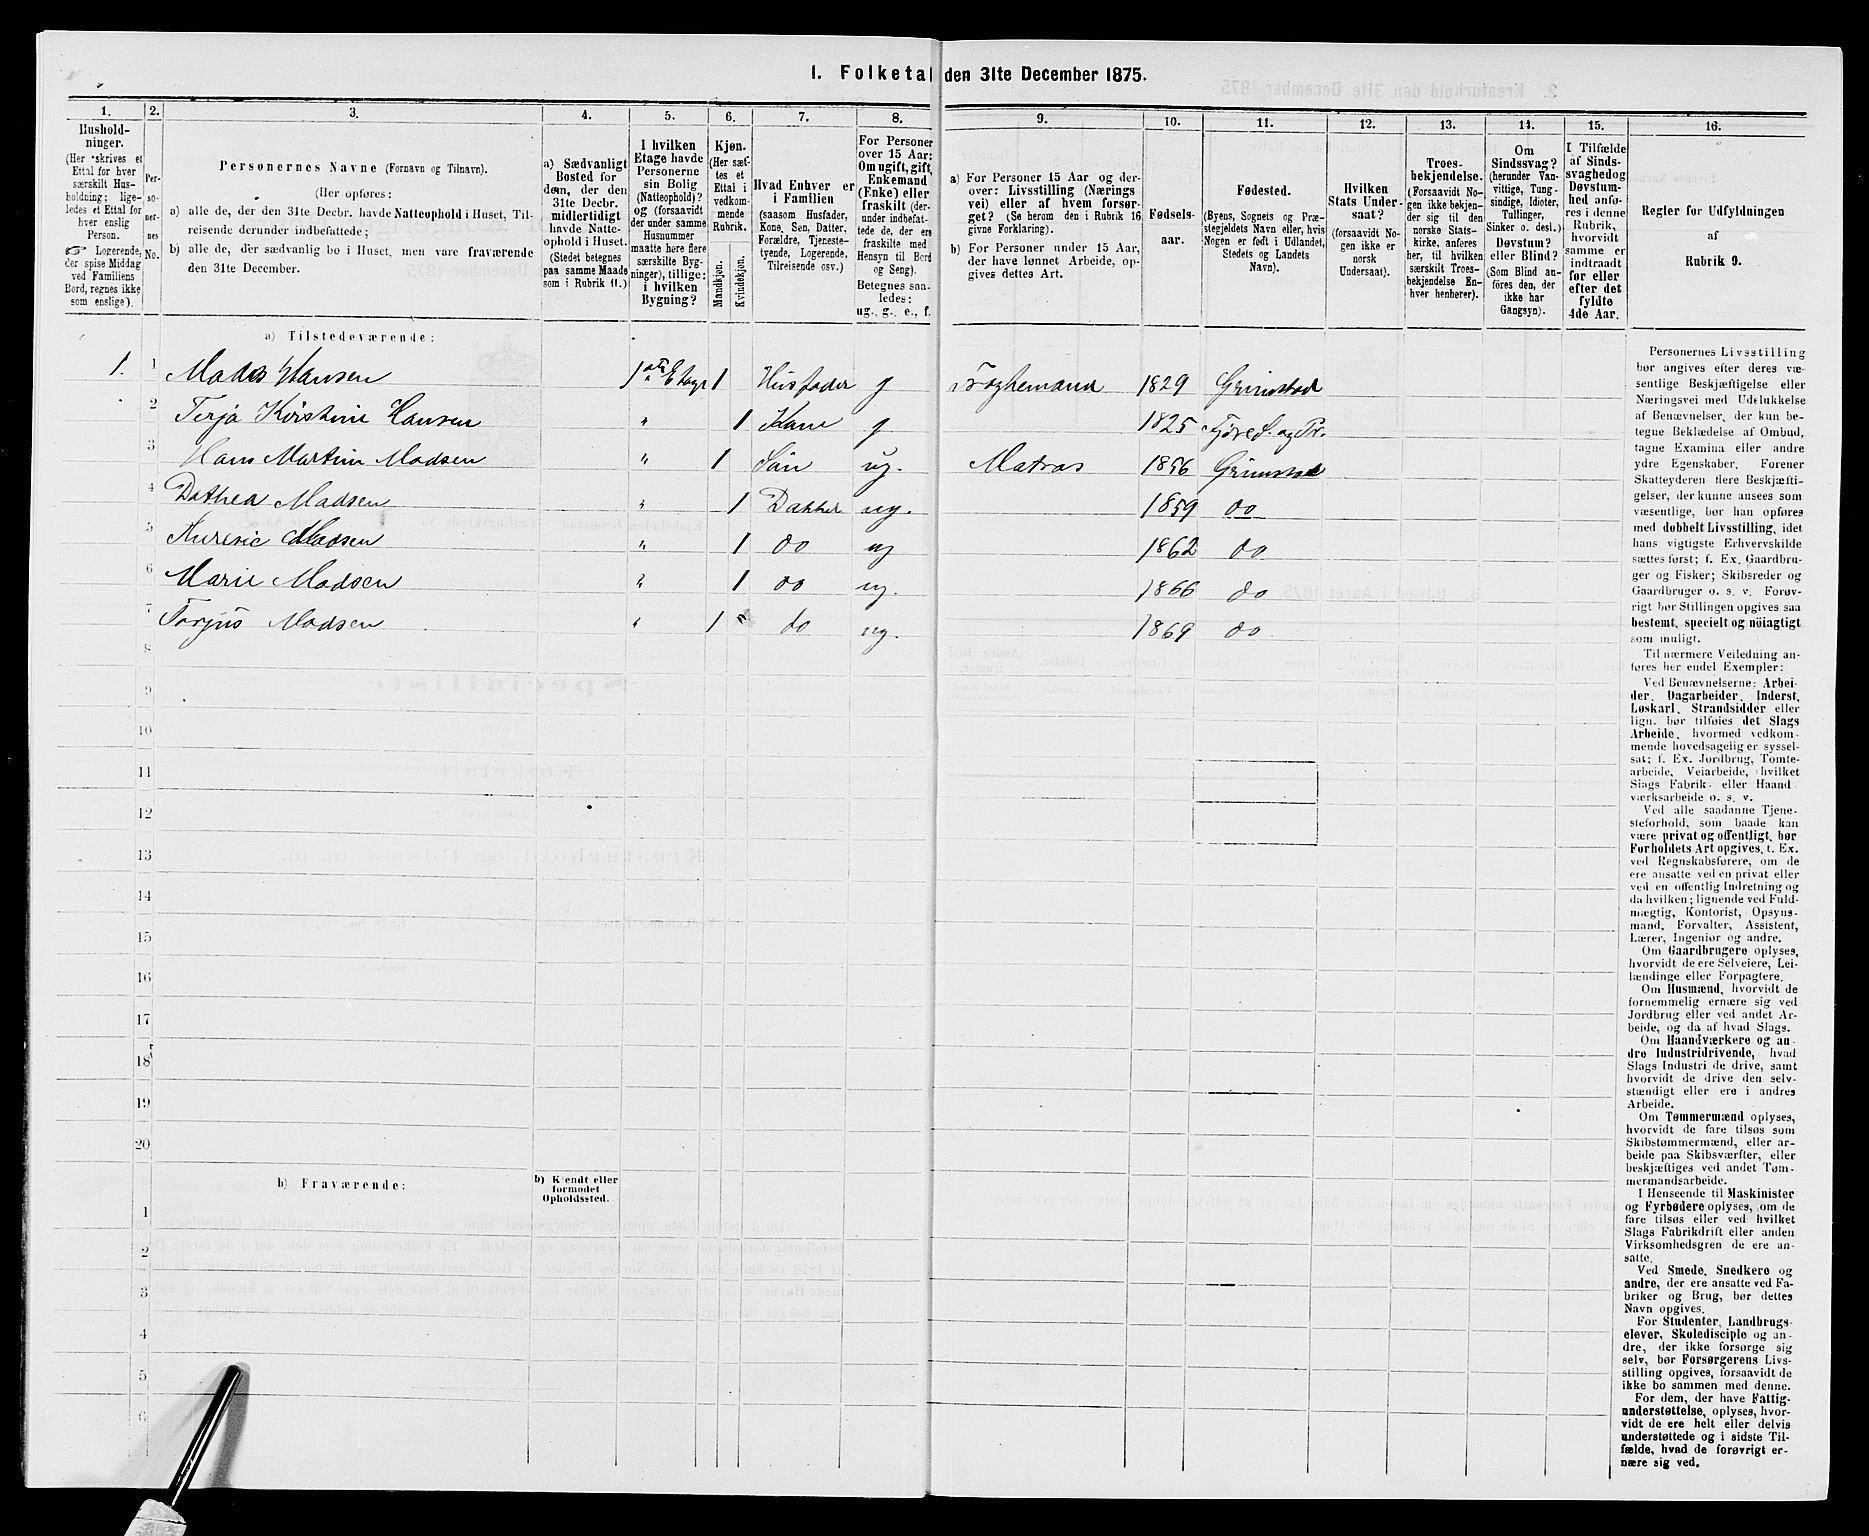 1. Folketal den 31te December 1875.
1. 2. 3. 4. 5. 6. 7. 8. 9. 10. 11. 12. 13. 14. 15. 16.
Hushold-
ninger.
(Her skrives et
Ettal for hver
særskilt Hus-
holdning; lige-
ledes et Ettal for
hver enslig
Person.
☞ Logerende,
der spise Middag
ved Familiens
Bord, regnes ikke
som enslige).
Per-
so-
ner-
nes
No.
Personernes Navne (Fornavn og Tilnavn).
(Her opføres:
a) alle de, der den 31te Decbr. havde Natteophold i Huset, Til-
reisende derunder indbefattede;
b) alle de, der sædvanlig bo i Huset, men vare fraværende
den 31te December.
a) Sædvanligt
Bosted for
dem, der den
31te Decbr.
midlertidigt
havde Natte-
ophold i Huset.
(Stedet betegnes
paa samme Maade
som i Rubrik 11.)
I hvilken
Etage havde
Personerne
sin Bolig
(Natteophold)?
og (forsaavidt
der under samme
Husnummer
maatte høre flere
særskilte Byg-
ninger), tillige:
i hvilken
Bygning?
Kjøn.
(Her sæt-
tes et
Ettal i
vedkom-
mende
Rubrik.
Mandkjøn.
Kvindekjøn.
Hvad Enhver er
i Familien
(saasom Husfader,
Kone, Søn, Datter,
Forældre, Tjeneste-
tyende, Logerende,
Tilreisende osv.)
For Personer
over 15 Aar:
Om ugift, gift,
Enkemand
(Enke) eller
fraskilt (der-
under indbefat-
tede de, der ere
fraskilte med
Hensyn til Bord
og Seng).
Betegnes saa-
ledes:
ug., g., e., f.
a) For Personer 15 Aar og der-
over: Livsstilling (Nærings
vei) eller af hvem forsør-
get? (Se herom den i Rubrik 16
givne Forklaring).
b) For Personer under 15 Aar,
der have lønnet Arbeide, op-
gives dettes Art.
Fødsels-
aar.
Fødested.
(Byens, Sognets og Præ-
stegjeldets Navn eller, hvis
Nogen er født i Udlandet,
Stedets og Landets
Navn).
Hvilken
Stats Under-
saat?
(forsaavidt No-
gen ikke er
norsk
Undersaat).
Troes-
bekjendelse.
(Forsaavidt No-
gen ikke bekjen-
der sig til den
norske Stats-
kirke, anføres
her, til hvilken
særskilt Troes-
bekjendelse En-
hver henhører).
Om
Sindssvag?
(herunder Van-
vittige, Tung-
sindige, Idioter,
Tullinger,
Sinker o. desl.)
Døvstum?
eller Blind?
(Som Blind an-
føres den, der
ikke har
Gangsyn).
I Tilfælde
af Sinds-
svaghed og
Døvstum-
hed anfø-
res i denne
Rubrik,
hvorvidt
samme er
indtraadt
før eller
efter det
fyldte
4de Aar.
Regler før Udfyldningen
af
Rubrik 9.
a) Tilstedeværende:
1. 1 Mads Hansen 1ste Etage 1 Husfader g 1829 Grimstad
2 Terja Kirstine Hansen " 1 Kone g 1825 Fjære S. og Pr.
3 Hans Martin Madsen " 1 Søn ug. Matros 1856 Grimstad
4 Dathea Madsen " 1 Datter ug. 1859 do
5 Madsen " 1 do ug 1862 do
6 Marie Madsen " 1 do ug. 1866 do
7 Torjus Madsen " 1 do ug. 1869 do
8
9
10
11
12
13
14
15
16
17
18
19
20
b) Fraværende:
b) Kjendt eller
formodet
Opholdssted.
1
2
3
4
5
6
Personernes Livsstilling
bør angives efter deres væ-
sentlige Beskjæftigelse eller
Næringsvei med Udelukkelse
af Benævnelser, der kun be-
tegne Beklædelse af Ombud,
tagne Examina eller andre
ydre Egenskaber. Forener
Skatteyderen flere Beskjæfti-
gelser, der kunne ansees som
væsentlige, bør han opføres
med dobbelt Livsstilling, idet
hans vigtigste Erhvervskilde
sættes først; f. Ex. Gaardbru-
ger og Fisker; Skibsreder og
Gaardbruger o. s. v. Forøv-
rigt bør Stillingen opgives saa
bestemt, specielt og nöiagtigt
som muligt.
Til nærmere Veiledning an-
føres her endel Exempler:
Ved Benævnelserne: Arbei-
der, Dagarbeider, Inderst,
Løskarl, Strandsidder eller
lign. bør tilføies det Slags
Arbeide, hvormed vedkom-
mende hovedsagelig er syssel-
sat; f. Ex. Jordbrug, Tomte-
arbeide, Veiarbeide, hvilket
Slags Fabrik- eller Haand
værksarbeide o. s. v.
Ved alle saadanne Tjene-
steforhold, som baade kan
være privat og offentligt, bør
Forholdets Art opgives, f. Ex.
ved Regnskabsførere, om de
ere ansatte ved en privat eller
ved en offentlig Indretning og
da hvilken; lignende ved Fuld-
mægtig, Kontorist, Opsyns-
mand, Forvalter, Assistent,
Lærer, Ingeniør og andre.
Om Gaardbrugere oplyses,
hvorvidt de ere Selveiere, Lei-
lændinge eller Forpagtere.
Om Husmænd, hvorvidt de
fornemmelig ernære sig ved
Jordbrug eller ved andet Ar-
beide, og da af hvad Slags.
Om Haandværkere og an-
dre Industridrivende, hvad
Slags Industri de drive, samt
hvorvidt de drive den selv-
stændigt eller ere i andres
Arbeide.
Om Tømmermænd oplyses,
hvorvidt de fare tilsøs som
Skibstømmermænd, eller ar-
beide paa Skibsværfter, eller
beskjæftiges ved andet Tøm-
mermandsarbeide.
I Henseende til Maskinister
og Fyrbødere oplyses, om de
fare tilsøs eller ved hvilket
Slags Fabrikdrift eller anden
Virksomhedsgren de ere an-
satte.
Ved Smede, Snedkere og
andre, der ere ansatte ved Fa-
briker og Brug, bør dettes
Navn opgives.
For Studenter, Landbrugs-
elever, Skoledisciple og an-
dre, der ikke forsørge sig
selv, bør Forsørgerens Livs-
stilling opgives, forsaavidt de
ikke bo sammen med denne.
For dem, der have Fattig-
understøttelse, oplyses, hvor-
vidt de ere helt eller delvis
understøttede og i sidste Til-
fælde, hvad de forøvrigt er-
nære sig ved.